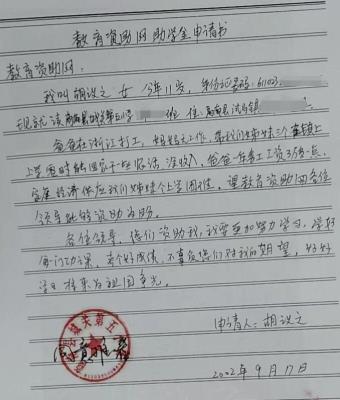 教育资助网助学金申请书
教育资助网:
我叫胡议之 女 今年11岁, 身份证号码: 61023
现就读商南县城关第五小学 班 住 商南县试马镇
爸爸在浙江打工, 妈妈无工作, 带我们姊妹三个在镇上
上学同时照顾家 没收入, 爸爸一年工资3万多一点,
家庭经济供应我们姊妹三个上学困难。望教育资助网各位
领导能够资助为盼。
各位领导, 你们资助我, 我要更加努力学习, 学好
每门功课, 考个好成绩, 不辜负你们对我的期望, 好好
学习将来为祖国争光。
申请人: 胡议之
2002年9月17日
城关第五